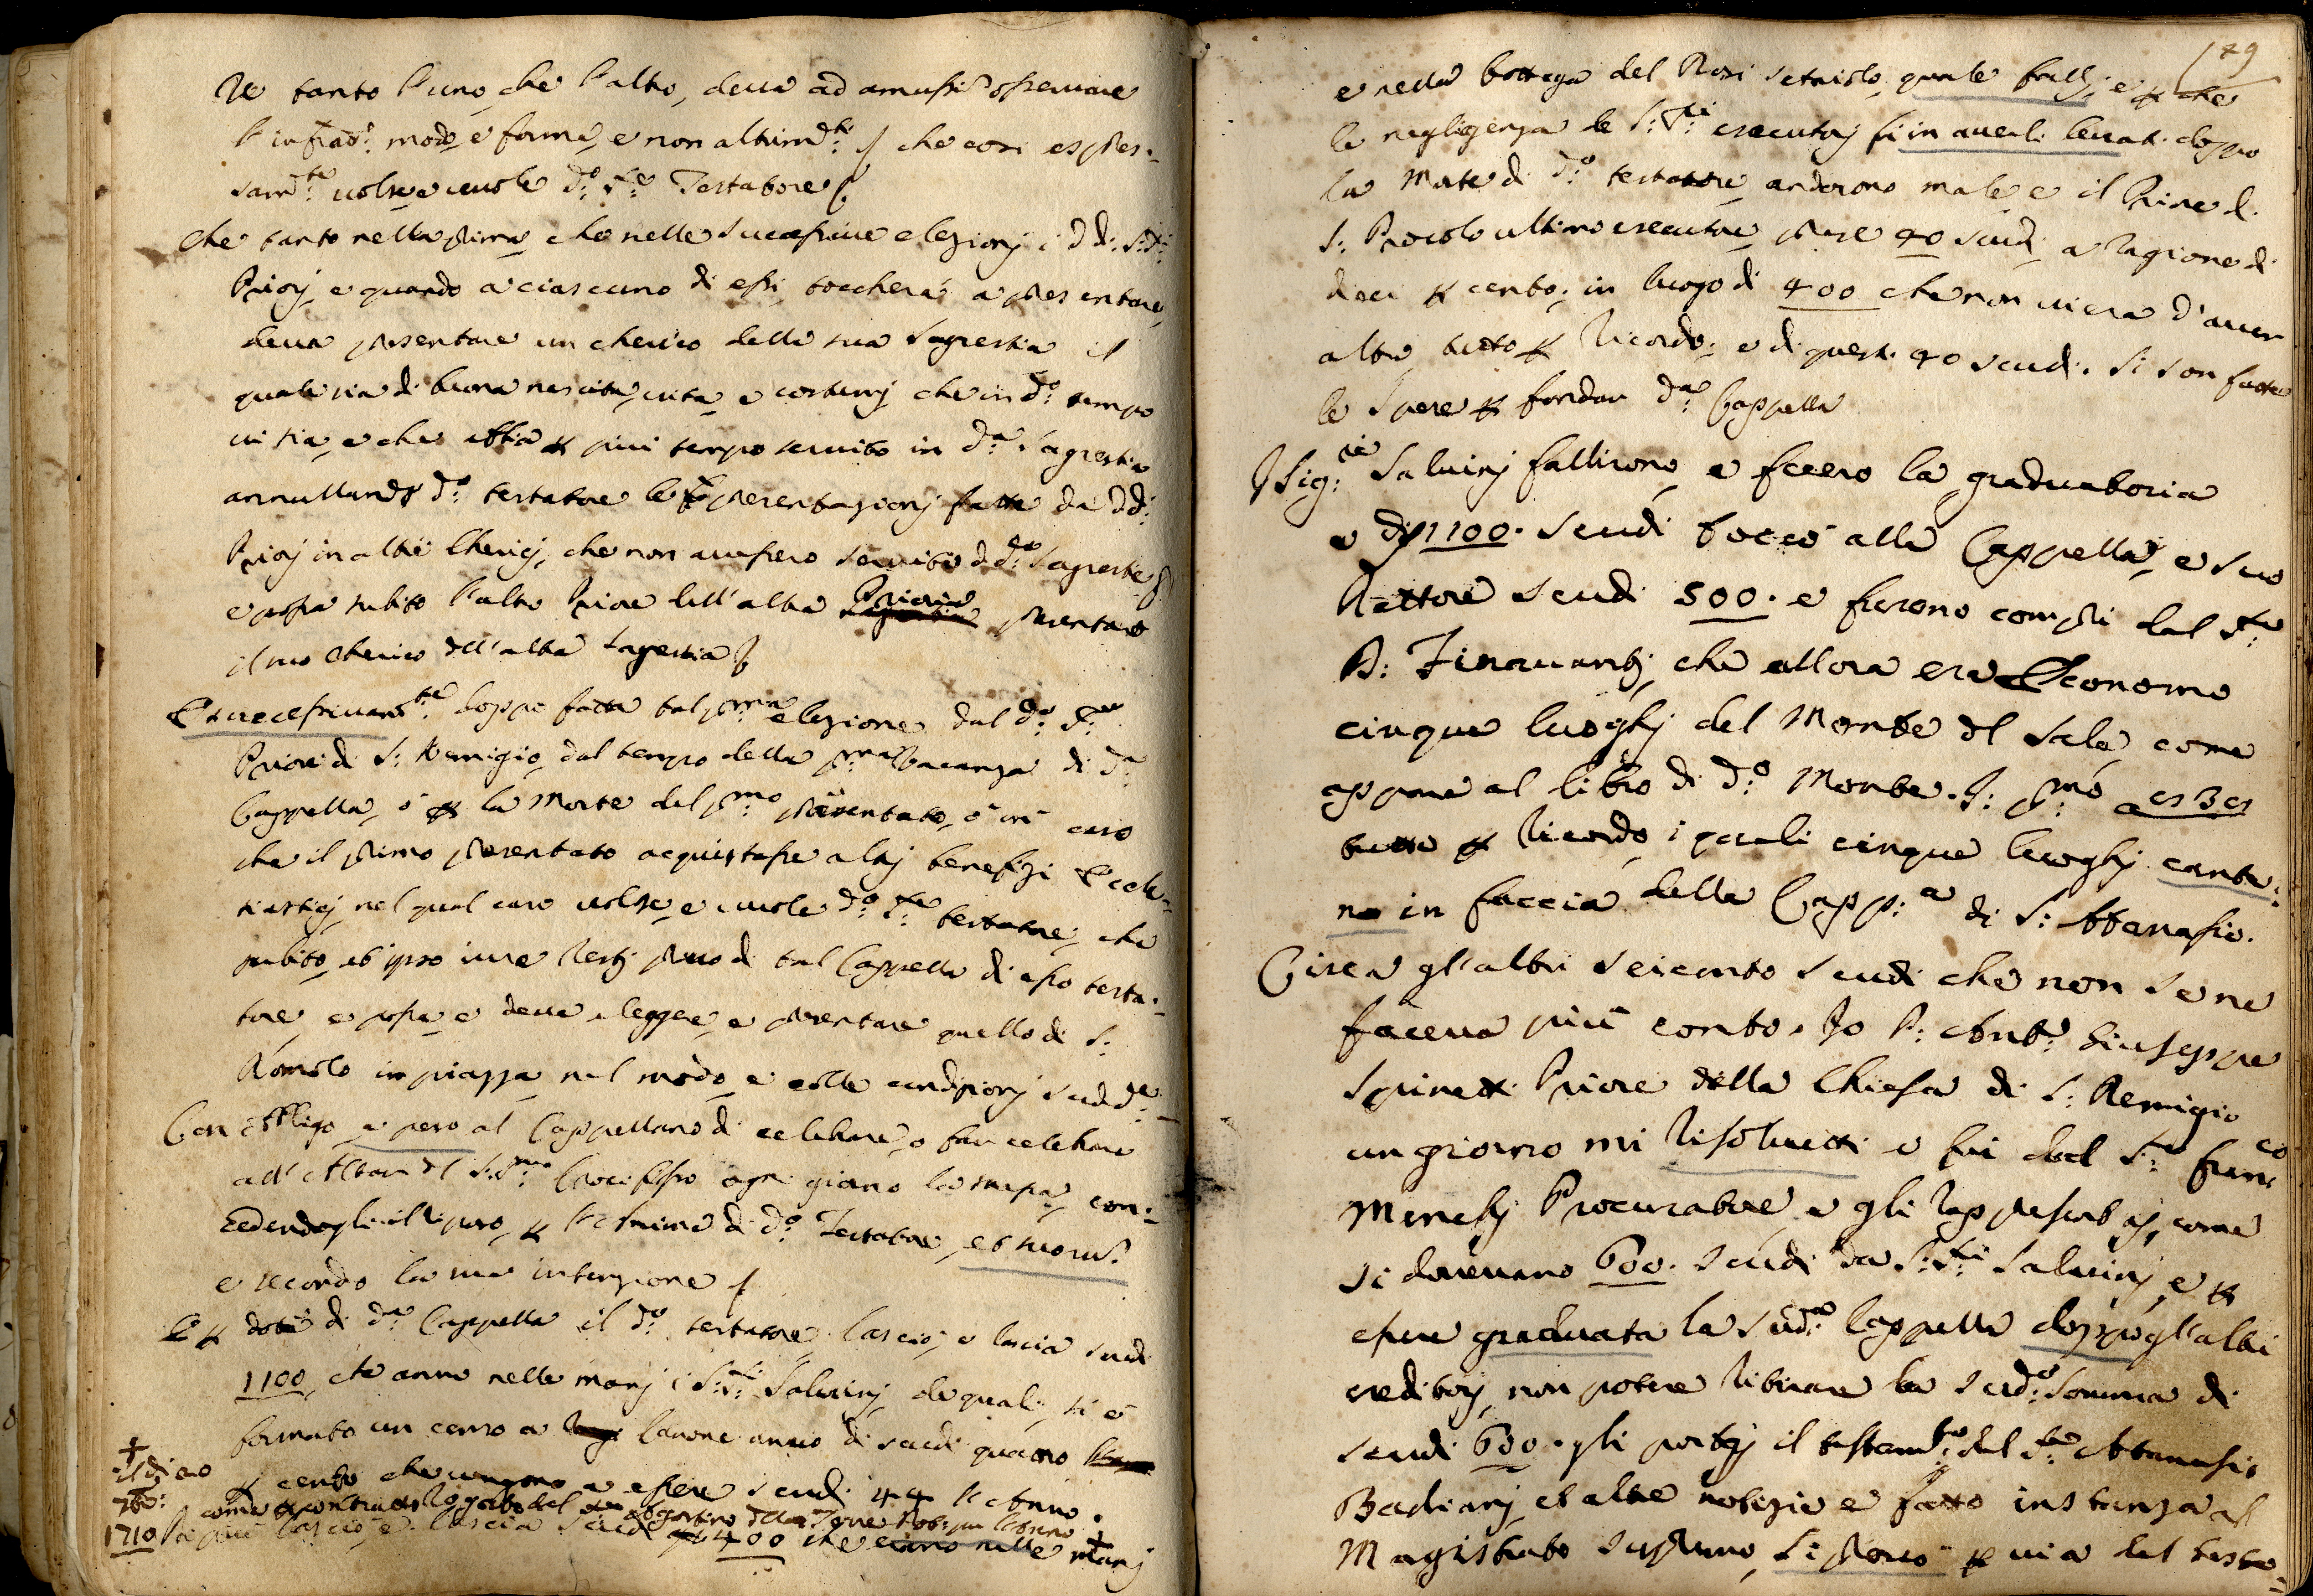 Re tanto l'uno, che l'altro, deva ad amussim osservare
l'infrad:º modo, e forma, e non altrim:ti che così espres-
sam:te volse e vuole d:º S:re Testatore
Che tanto nella prima che nelle successive elezionj i dd: S:ri
Priorj, e quando a ciascuno di essi toccherà a presentare,
deva presentare un cherico della sua Sagrestia il
quale sia di buona nascita, vita, e costumj che in d:º tempo
vi sia, e che abbia p più tempo servito in d:ª Sagrestia
annullando d:º testatore le presentazionj fatte da dd:
Priorj in altri Chericj, che non avessero servito d:ª Sagrestia
e possa subito l'altro Priore dell'altra Prioria presentare
il suo cherico dell'altra Sagrestia
E successivam:te doppo fatta tal p:ma elezione dal d:º S:re
Priore di S: Remigio, dal tempo della p:ma vacanza di d:ª
Cappella, ò p la Morte del p:mo presentato, ò in caso
che il primo presentato acquistasse altrj benefizi Eccle-
siasticj, nel qual caso volse, e vuole d:º S:re testatore, che
subito, et ipso iure restj privo di tal Cappella di esso testa-
tore, e possa e deva eleggere, e presentare quello di S:
Romolo in piazza nel modo, e colle condizionj sudd:e
Con obbligo, e peso al Cappellano di celebrare, o far celebrare
all'Altare del S:S:mo Crocifisso ogni giorno la messa, con-
cedendogli il riposo, p l'Anima di d:º Testatore, et suorum
e secondo la sua intenzione
E p dote di d:ª Cappella il d:º testatore lasciò, e lascia scudi
1100, che anno nelle manj i S:ri Salvinj, de quali, si è
formato un censo a ragione annuo di scudi quattro
p cento che vengono a essere scudi 44 l'Anno.
come p contratto rogato dal
1710 Di più lasciò e lascia scudi 400 che erano nelle manj
149
e nella bottega del Rosi setaiolo, quale fallì, e p che
la negligenza de S:ri esecutorj si in averli levati doppo
la Morte di d:º testatore anderono male, e il Priore di
S: Procolo ultimo esecutore prese 40 scudi, a ragione di
dieci p cento, in luogo di 400 che non vi era d'aver
altro, tutto p ricordo, e di questi 40 scudi. Si son fatte
le spese p fondar d:ª Cappella
I Sig:ri Salvinj fallirono, e fecero la graduatoria
e di 1100. scudi toccò alla Cappella, e suo
Rettore scudi 500. e furono compri dal S:re
P: Finavantj, che allora era Economo
cinque luoghj del Monte del Sale come
appare al libro di d:º Monte. p:mo a
tutto p ricordo, i quali cinque luoghj canta-
no in faccia della Capp:ª di S: Attanasio.
Circa gl'altri seicento scudi che non se ne
faceva più conto. Io P: Ant:º Giuseppe
Spinetti Priore della Chiesa di S: Remigio
un giorno mi risolvetti e fui dal S:re Franc:co
Menchj Procuratore, e gli rappresentaj, come
si dovevano 600. scudi da S:S:ri Salvinj, e p
essere graduata la sud:ª Cappella doppo gl'altri
creditorj, non potere ritirare la sud:ª somma di
scudi 600. gli portaj il testam:to del S:re Attanasio
Badianj, et altre notizie e fatto instanza al
Magistrato Supremo, si provò p via del testa-